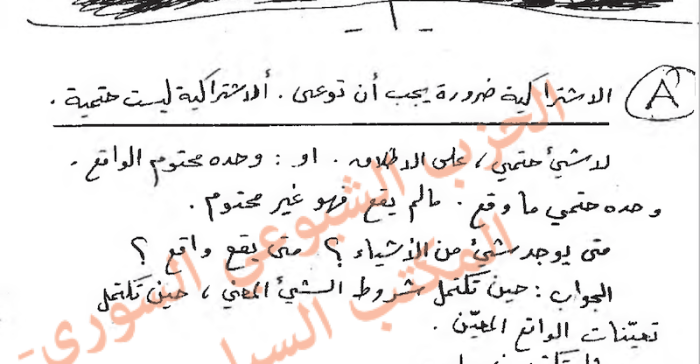 - ١ -
A
الاشتراكية ضرورة يجب أن توعى. الاشتراكية ليست حتمية.
لا شيئ حتمي، على الاطلاق. او: وحده محتوم الواقع.
وحده حتمي ما وقع. مالم يقع فهو غير محتوم.
متى يوجد شيئ من الأشياء؟ متى يقع واقع؟
الجواب: حين تكتمل شروط الشيئ المعني، حين تكتمل
تعيّنات الواقع المعيّن.
الحزب الشيوعي السوري-
المكتب